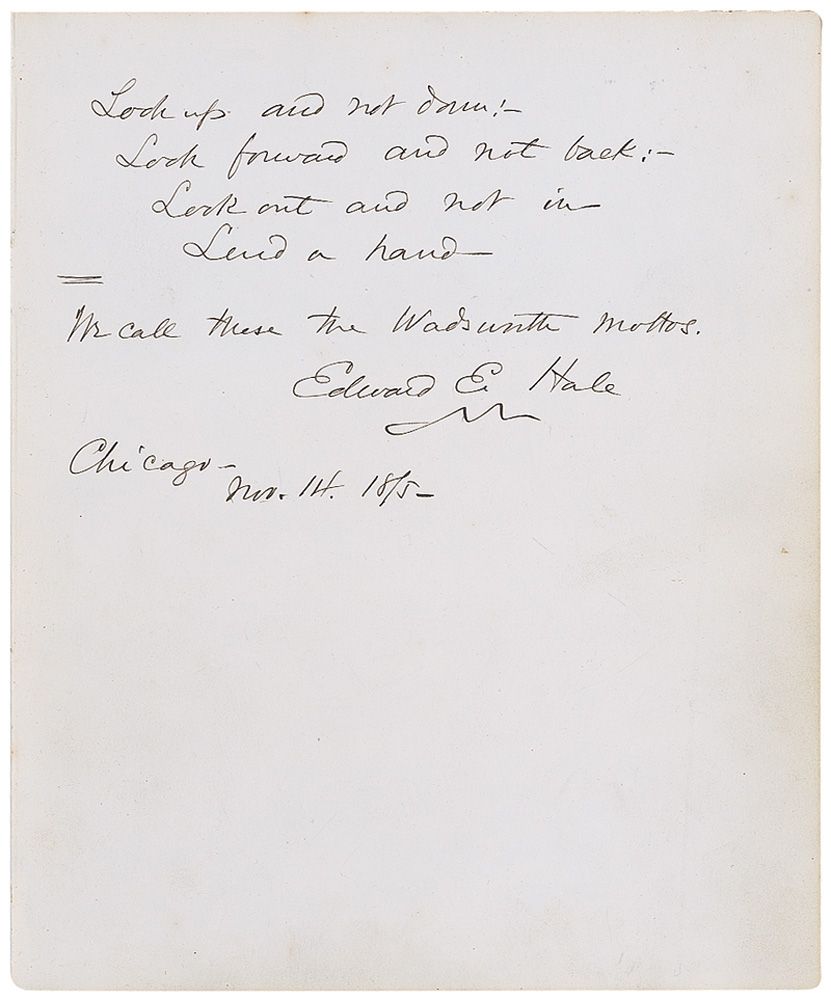 Look up and not down:—
Look forward and not back:—
Look out and not in—
Lend a hand—
We call these the Wadsworth Mottos.
Edward E. Hale
Chicago—
Nov. 14. 1875—